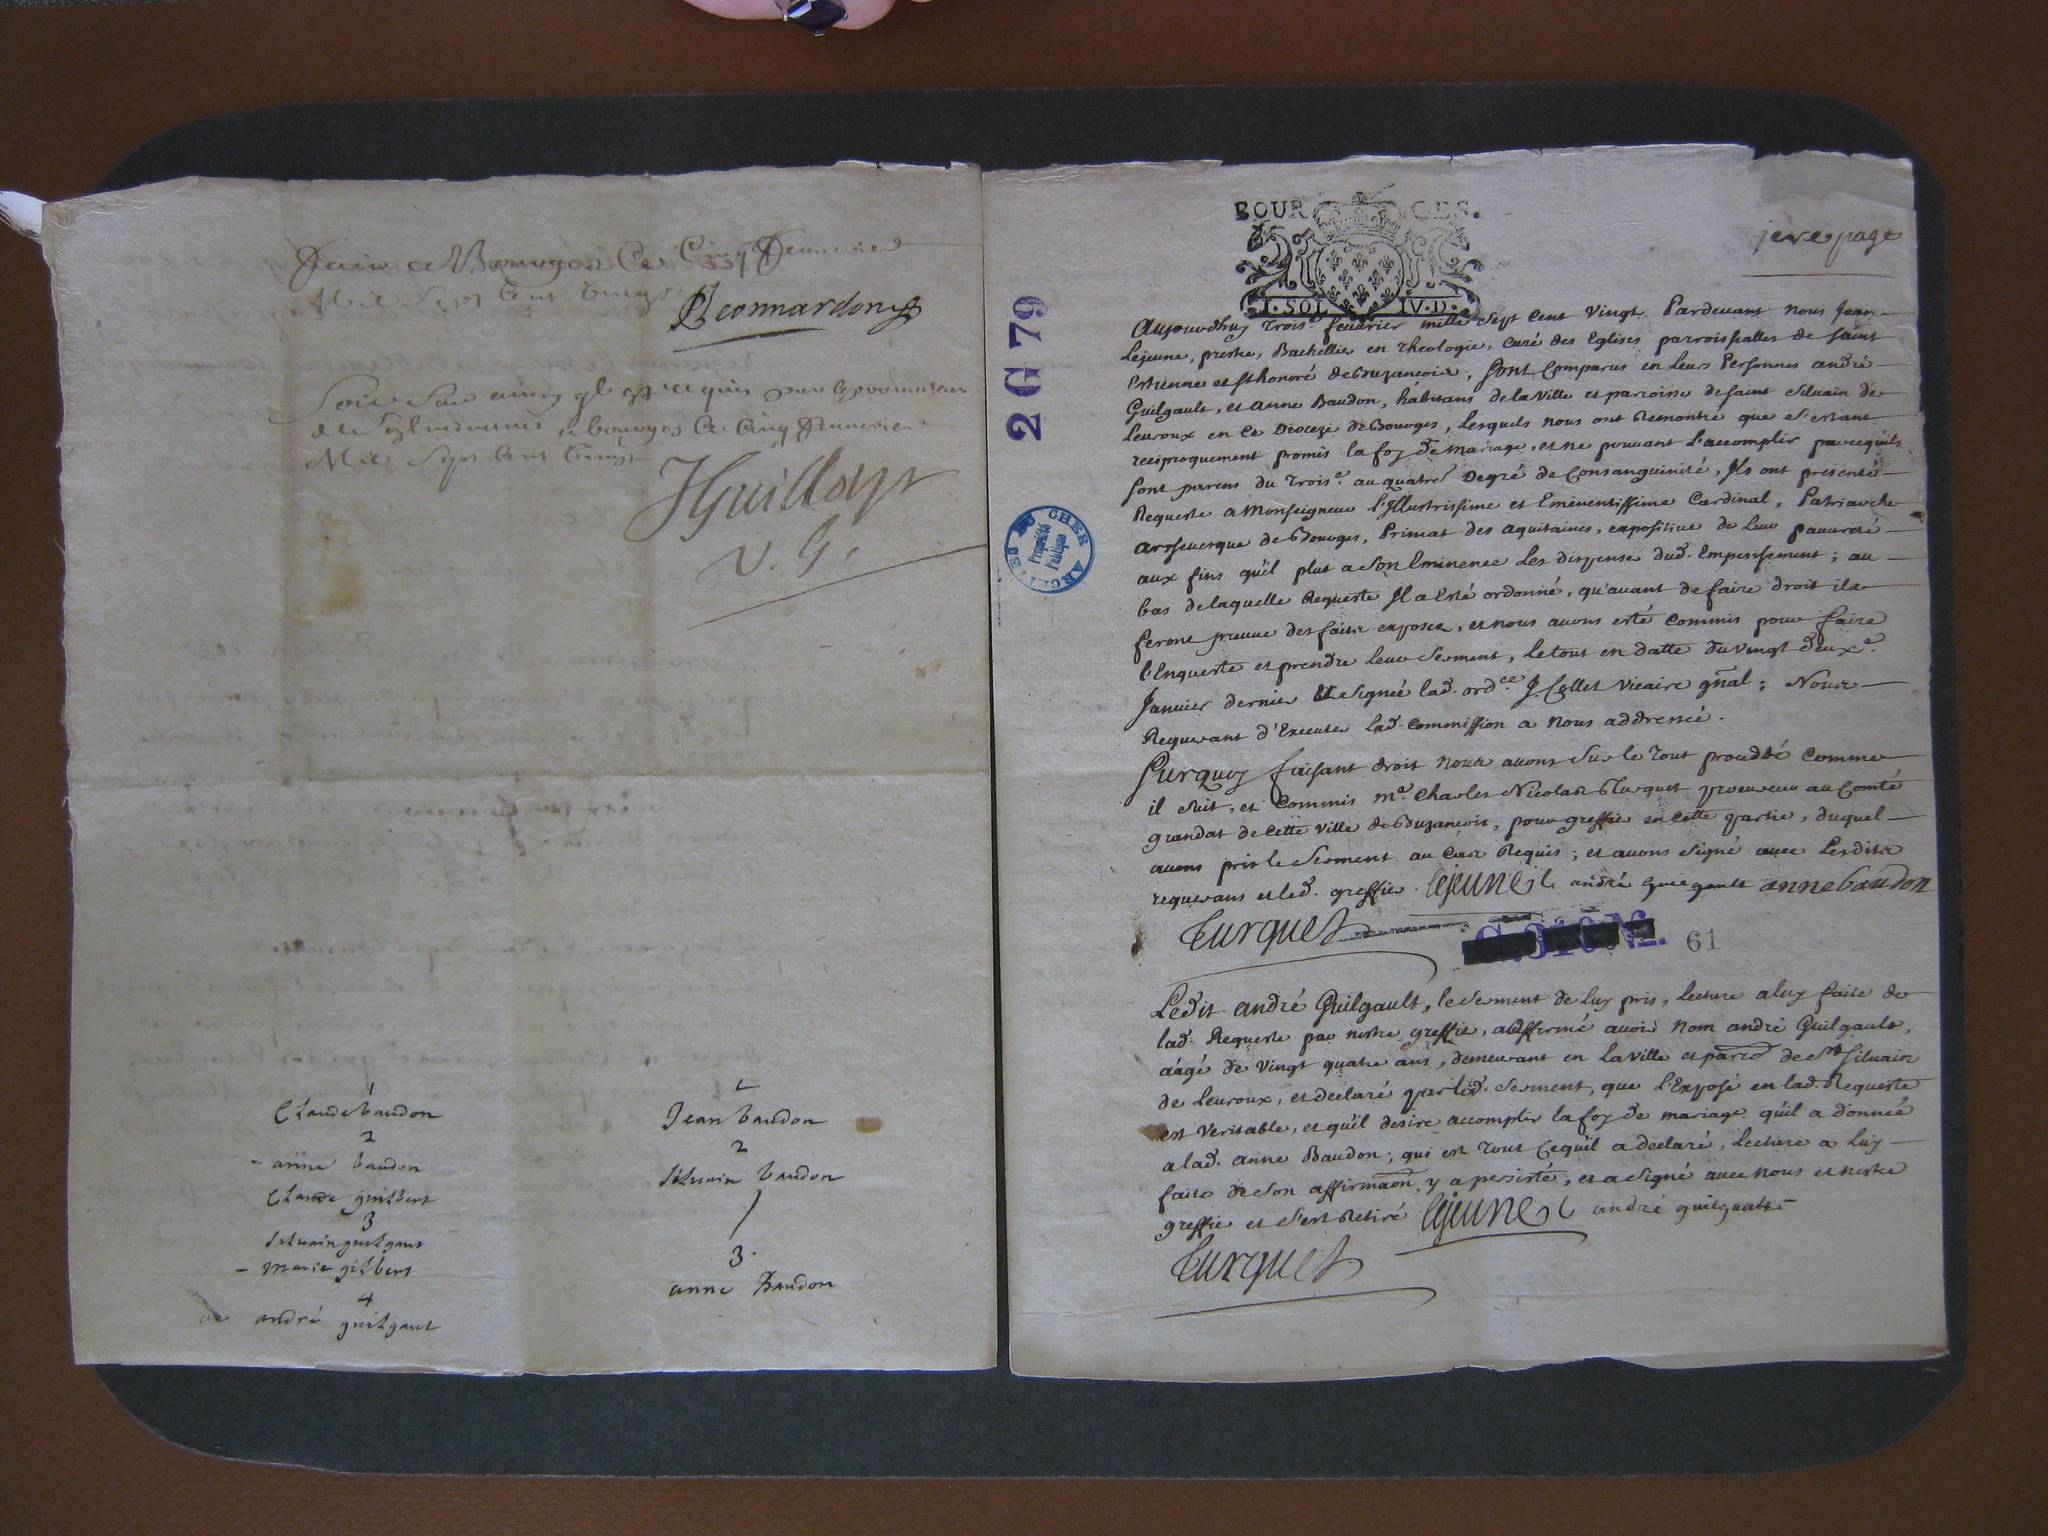 Mil Sept Cent Vingt
Leonnardon
Soit fait ainsy qu'il est requis par
a bourges ce cinq feuvrier
Mil Sept Cent Vingt
JGuillot
V. G.
1
Claude baudon
2
- anne baudon
Claude guilbert
3
Siluain guilgaut
- marie gilbert
4
andré guilgaut
1
Jean baudon
2
Siluain baudon
3
anne Baudon
BOURGES.
I. SOL IV. D.
1ere page
2 G 79
ARCHIVES DU CHER
Propriété Publique
Aujourdhuy Trois.e feuurier mille Sept Cent Vingt Pardeuant Nous Jean
Lejeune, prestre, Bachellier en Theologie, curé des Eglises parroissialles de Saint
Estienne et St honoré de Buzancois, Sont Comparus en Leurs Personnes andré
Guilgault, et anne Baudon, habitans de la Ville et parroisse de Saint Siluain de
Leuroux en Ce Dioceze de Bourges, Lesquels nous ont Remontré que S'estant
reciproquement promis la foy de mariage, et ne pouuant L'accomplir parcequils
Sont parens du Trois.e au quatre.e Degré de Consanguinité, Ils ont presenté
Requeste a Monseigneur L'Illustrissime et Eminentissime Cardinal, Patriarche
Archeuesque de Bourges, Primat des aquitaines, expositiue de Leur pauureté
aux fins qu'il plut a Son Eminence Les dispenser dud. Empeschement; au
bas delaquelle Requeste Il a Esté ordonné, qu'auant de faire droit ils
feront preuue des faits exposez, et nous auons esté Commis pour faire
l'Enqueste et prendre leur Serment, le tout en datte du Vingt deux.e
Januier dernier Signée lad. ord.ce J. Collet Vicaire gñal; Nous
Requerant d'Executer lad. Commission a Nous addressée.
Surquoy faisant droit Nous auons Sur le Tout proceddé Comme
il Suit, et Commis M.e Charles Nicolas Turquet procureur au Comté
grandat de Cette Ville de Buzancois, pour greffier en Cette partie, duquel
auons pris le Serment au Cas Requis; et auons Signé auec Lesdits
requerans et led. greffier. Lejeune andré Guilgault anne baudon
Turquet
61
Ledit andré Guilgault, le Serment de Luy pris, Lecture a luy faite de
lad. Requeste par nostre greffier, a affermé auoir Nom andré Guilgault,
aagé de Vingt quatre ans, demeurant en La Ville et parr. de St Siluain
de Leuroux, et declaré par led. Serment, que L'Exposé en lad. Requeste
est Veritable, et qu'il desire accomplir la foy de mariage qu'il a donnée
a lad. anne Baudon; qui est Tout Cequ'il a declaré, Lecture a Luy
faite de Son affirmaon, y a persisté, et a Signé auec Nous et nostre
greffier et S'est Retiré Lejeune andré guilgault
Turquet